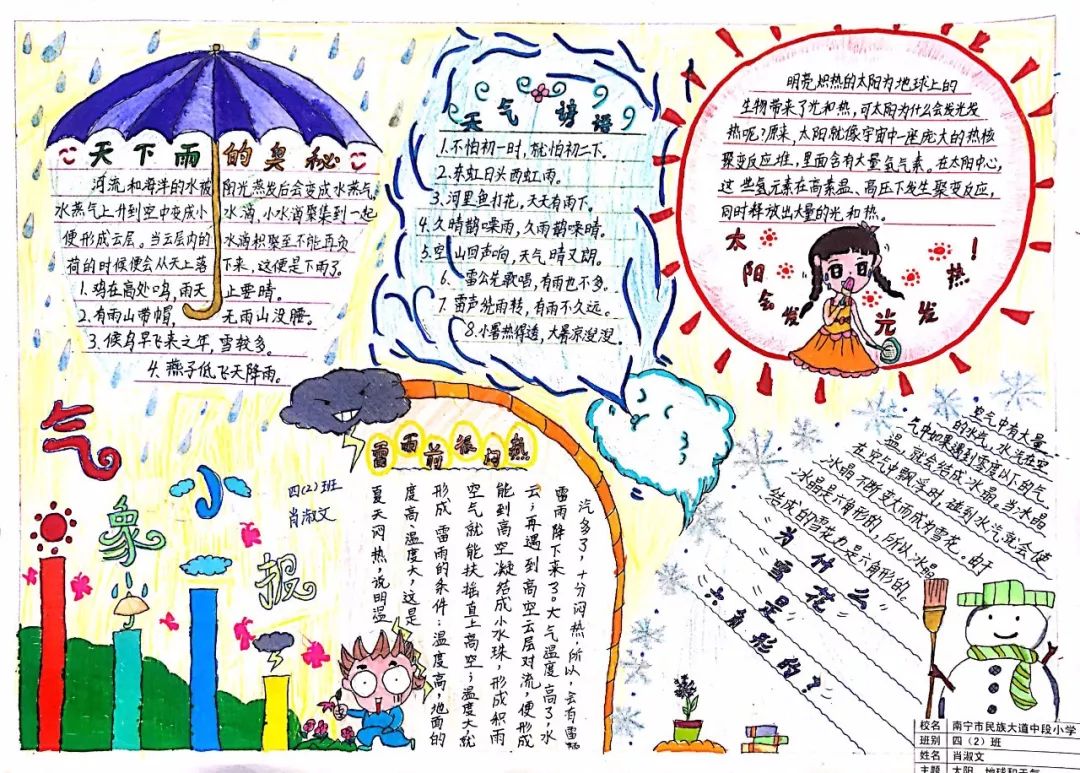 天下雨的奥秘
河流和海洋的水被阳光蒸发后会变成水蒸气,
水蒸气上升到空中变成小水滴,小水滴聚集到一起
便形成云层。当云层内的水滴积聚至不能再负
荷的时候便会从天上落下来,这便是下雨了。
1.鸡在高处鸣,雨天止要晴。
2.有雨山带帽,无雨山没腰。
3.候鸟早飞来之年,雪较多。
4.燕子低飞天降雨。
天气谚语
1.不怕初一时,就怕初二下。
2.东虹日头西虹雨。
3.河里鱼打花,天天有雨下。
4.久晴鹊噪雨,久雨鹊噪晴。
5.空山回声响,天气晴又朗。
6.雷公先歌唱,有雨也不多。
7.雷声绕雨转,有雨不久远。
8.小暑热得透,大暑凉溲溲。
明亮炽热的太阳为地球上的
生物带来了光和热,可太阳为什么会发光发
热呢?原来,太阳就像宇宙中一座庞大的热核
聚变反应堆,里面含有大量氢气素。在太阳中心,
这些氢元素在高素温、高压下发生聚变反应,
同时释放出大量的光和热。
太阳会发光发热!
气象小报
四(2)班
肖淑文
雷雨前很闷热
夏天闷热,说明温
度高湿度大,这是
形成雷雨的条件:温度高,地面的
空气就能扶摇直上高空;湿度大,就
能到高空凝结成小水珠,形成积雨
云;再遇到高空云层对流,便形成
雷雨降下来了。大气温度高了,水
汽多了,十分闷热,所以,会有雷
为什么
雪花是
六角形的?
空气中有大量
的水汽,水汽在空
气中如果遇到零度以下的气
温,就会结成冰晶。当冰晶
在空气中飘浮时,碰到水汽就会使
冰晶不断变大而成为雪花。由于
冰晶是六角形的,所以冰晶
结成的雪花力是六角形的。
校名 南宁市民族大道中段小学
班别 四(2)班
姓名 肖淑文
主题 太阳、地球和天气